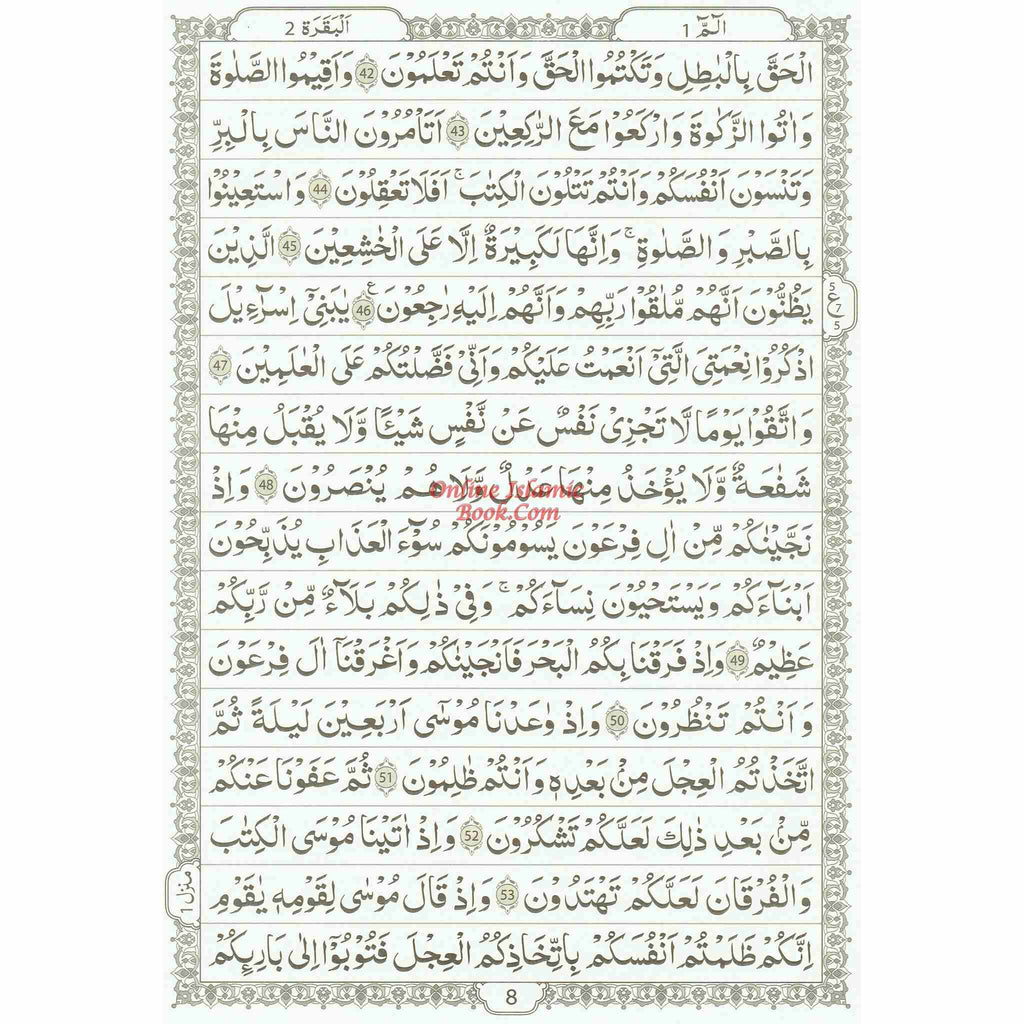 الٓمّٓ 1
اَلْبَقَرَة 2
الْحَقَّ بِالْبٰطِلِ وَتَكْتُمُوا الْحَقَّ وَاَنْتُمْ تَعْلَمُوْنَ 42 وَاَقِيْمُوا الصَّلٰوةَ
وَاٰتُوا الزَّكٰوةَ وَارْكَعُوْا مَعَ الرّٰكِعِيْنَ 43 اَتَاْمُرُوْنَ النَّاسَ بِالْبِرِّ
وَتَنْسَوْنَ اَنْفُسَكُمْ وَاَنْتُمْ تَتْلُوْنَ الْكِتٰبَ ۚ اَفَلَا تَعْقِلُوْنَ 44 وَاسْتَعِيْنُوْا
بِالصَّبْرِ وَالصَّلٰوةِ ۚ وَاِنَّهَا لَكَبِيْرَةٌ اِلَّا عَلَى الْخٰشِعِيْنَ 45 الَّذِيْنَ
يَظُنُّوْنَ اَنَّهُمْ مُّلٰقُوْا رَبِّهِمْ وَاَنَّهُمْ اِلَيْهِ رٰجِعُوْنَ 46 ع يٰبَنِيْٓ اِسْرَآءِيْلَ
5
ع
7
5
اذْكُرُوْا نِعْمَتِيَ الَّتِيْٓ اَنْعَمْتُ عَلَيْكُمْ وَاَنِّيْ فَضَّلْتُكُمْ عَلَى الْعٰلَمِيْنَ 47
وَاتَّقُوْا يَوْمًا لَّا تَجْزِيْ نَفْسٌ عَنْ نَّفْسٍ شَيْـًٔا وَّلَا يُقْبَلُ مِنْهَا
شَفٰعَةٌ وَّلَا يُؤْخَذُ مِنْهَا عَدْلٌ وَّلَا هُمْ يُنْصَرُوْنَ 48 وَاِذْ
Online Islamic
Book.Com
نَجَّيْنٰكُمْ مِّنْ اٰلِ فِرْعَوْنَ يَسُوْمُوْنَكُمْ سُوْٓءَ الْعَذَابِ يُذَبِّحُوْنَ
اَبْنَآءَكُمْ وَيَسْتَحْيُوْنَ نِسَآءَكُمْ ۚ وَفِيْ ذٰلِكُمْ بَلَآءٌ مِّنْ رَّبِّكُمْ
عَظِيْمٌ 49 وَاِذْ فَرَقْنَا بِكُمُ الْبَحْرَ فَاَنْجَيْنٰكُمْ وَاَغْرَقْنَآ اٰلَ فِرْعَوْنَ
وَاَنْتُمْ تَنْظُرُوْنَ 50 وَاِذْ وٰعَدْنَا مُوْسٰٓى اَرْبَعِيْنَ لَيْلَةً ثُمَّ
اتَّخَذْتُمُ الْعِجْلَ مِنْۢ بَعْدِهٖ وَاَنْتُمْ ظٰلِمُوْنَ 51 ثُمَّ عَفَوْنَا عَنْكُمْ
مِّنْۢ بَعْدِ ذٰلِكَ لَعَلَّكُمْ تَشْكُرُوْنَ 52 وَاِذْ اٰتَيْنَا مُوْسَى الْكِتٰبَ
وَالْفُرْقَانَ لَعَلَّكُمْ تَهْتَدُوْنَ 53 وَاِذْ قَالَ مُوْسٰى لِقَوْمِهٖ يٰقَوْمِ
منزل 1
اِنَّكُمْ ظَلَمْتُمْ اَنْفُسَكُمْ بِاتِّخَاذِكُمُ الْعِجْلَ فَتُوْبُوْٓا اِلٰى بَارِئِكُمْ
8